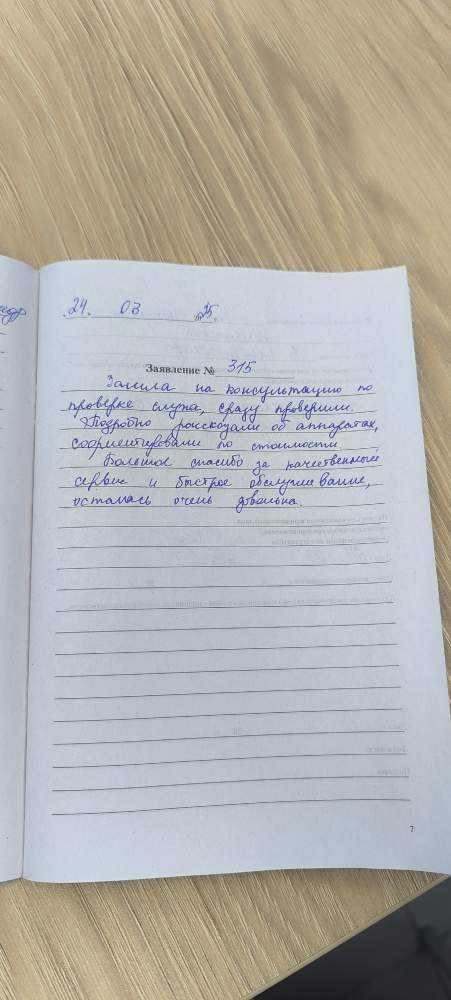 24. 03 25.
Заявление № 315
Зашла на консультацию по
проверке слуха, сразу проверили.
Подробно рассказали об аппаратах,
сориентировали по стоимости.
Большое спасибо за качественный
сервис и быстрое обслуживание,
осталась очень довольна.
7